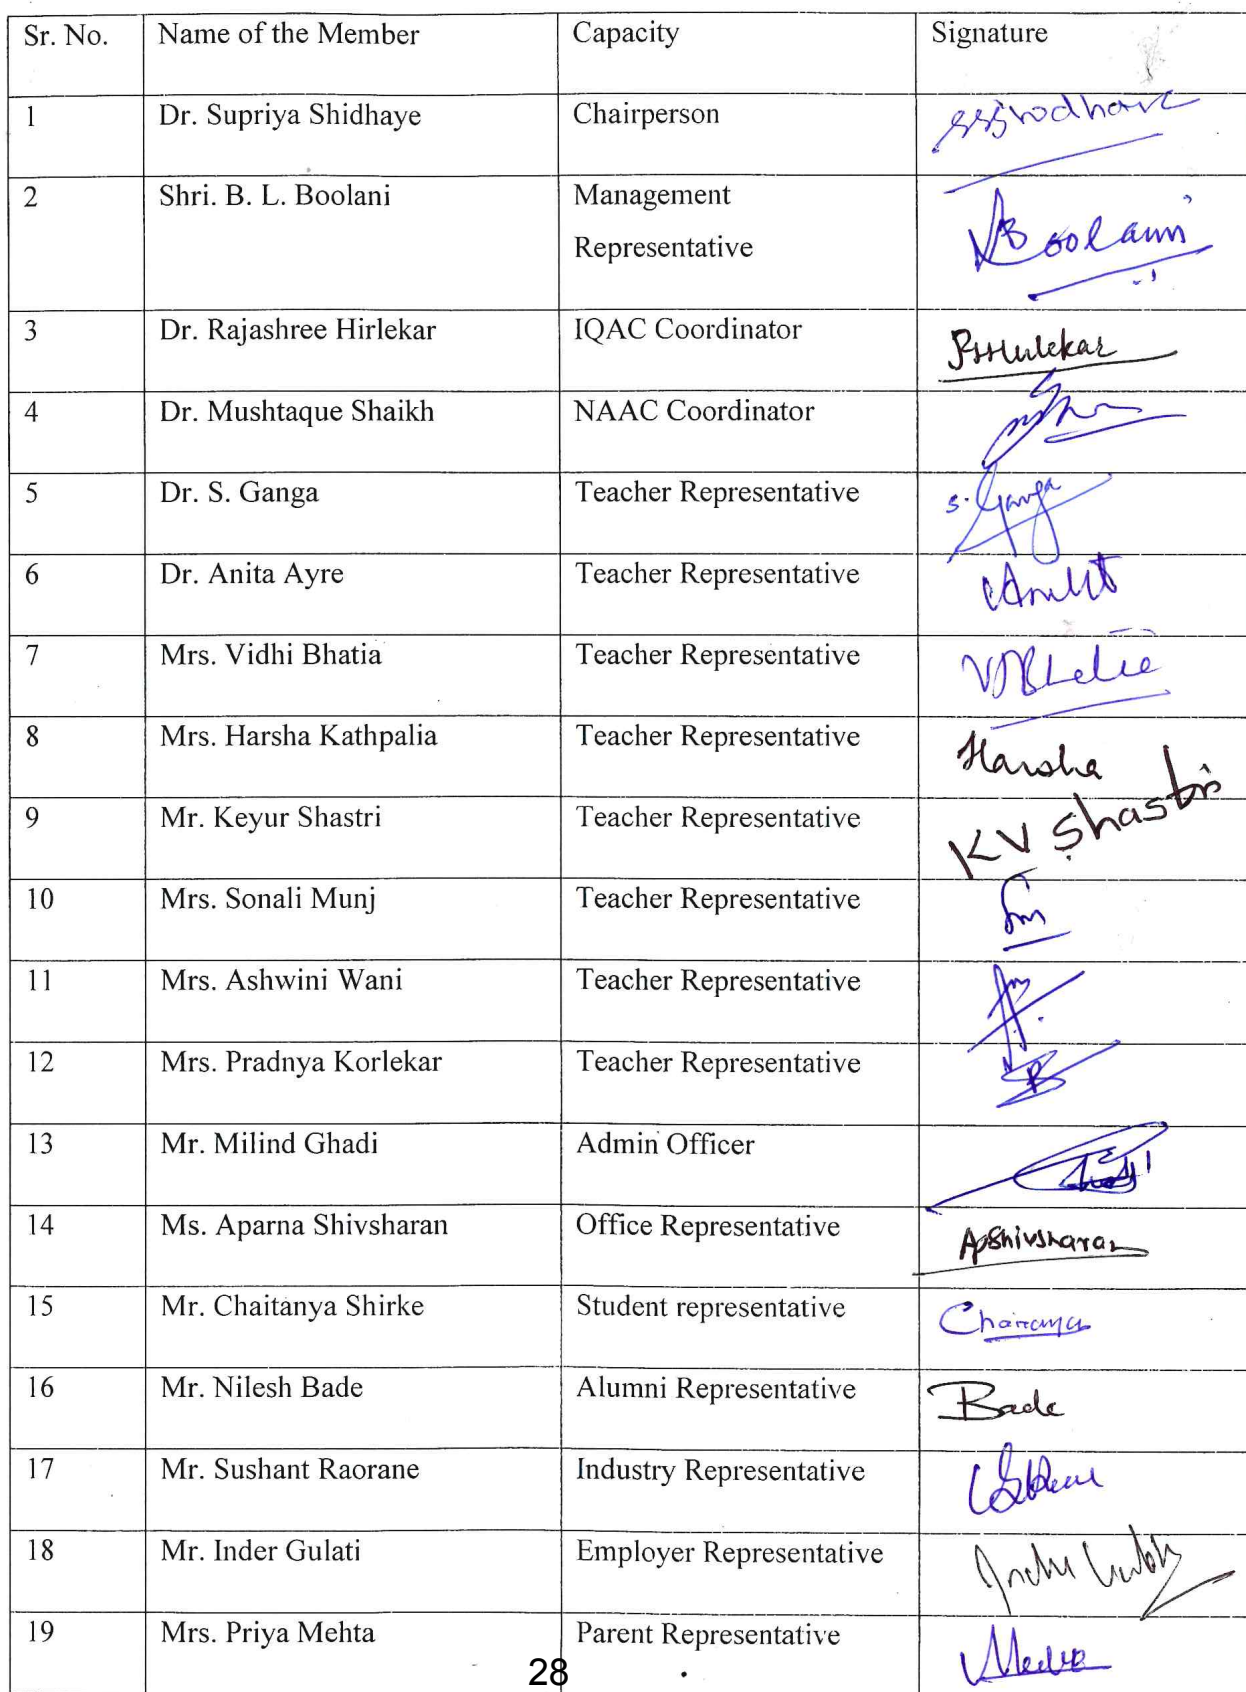 Sr. No. Name of the Member Capacity Signature
1 Dr. Supriya Shidhaye Chairperson
2 Shri. B. L. Boolani Management Boolani
Representative
3 Dr. Rajashree Hirlekar IQAC Coordinator
4 Dr. Mushtaque Shaikh NAAC Coordinator
5 Dr. S. Ganga Teacher Representative S. Ganga
6 Dr. Anita Ayre Teacher Representative
7 Mrs. Vidhi Bhatia Teacher Representative
8 Mrs. Harsha Kathpalia Teacher Representative Harsha
9 Mr. Keyur Shastri Teacher Representative KV Shastri
10 Mrs. Sonali Munj Teacher Representative
11 Mrs. Ashwini Wani Teacher Representative
12 Mrs. Pradnya Korlekar Teacher Representative
13 Mr. Milind Ghadi Admin Officer
14 Ms. Aparna Shivsharan Office Representative Apshivsharan
15 Mr. Chaitanya Shirke Student representative
16 Mr. Nilesh Bade Alumni Representative Bade
17 Mr. Sushant Raorane Industry Representative
18 Mr. Inder Gulati Employer Representative
19 Mrs. Priya Mehta Parent Representative
28